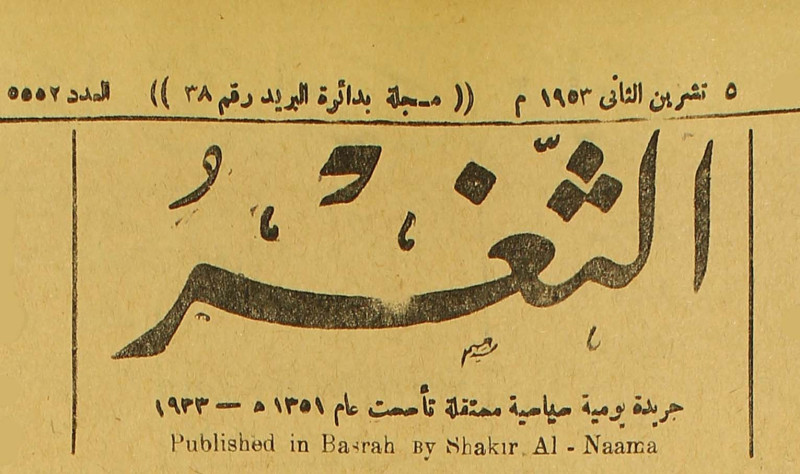 ٥ تشرين الثانى ١٩٥٣ م (( مسجلة بدائرة البريد رقم ٣٨ )) العدد ٥٥٥٢
الثَّغْرُ
جريدة يومية سياسية مستقلة تأسست عام ١٣٥١ ه — ١٩٣٣
Published in Basrah By Shakir Al - Naama